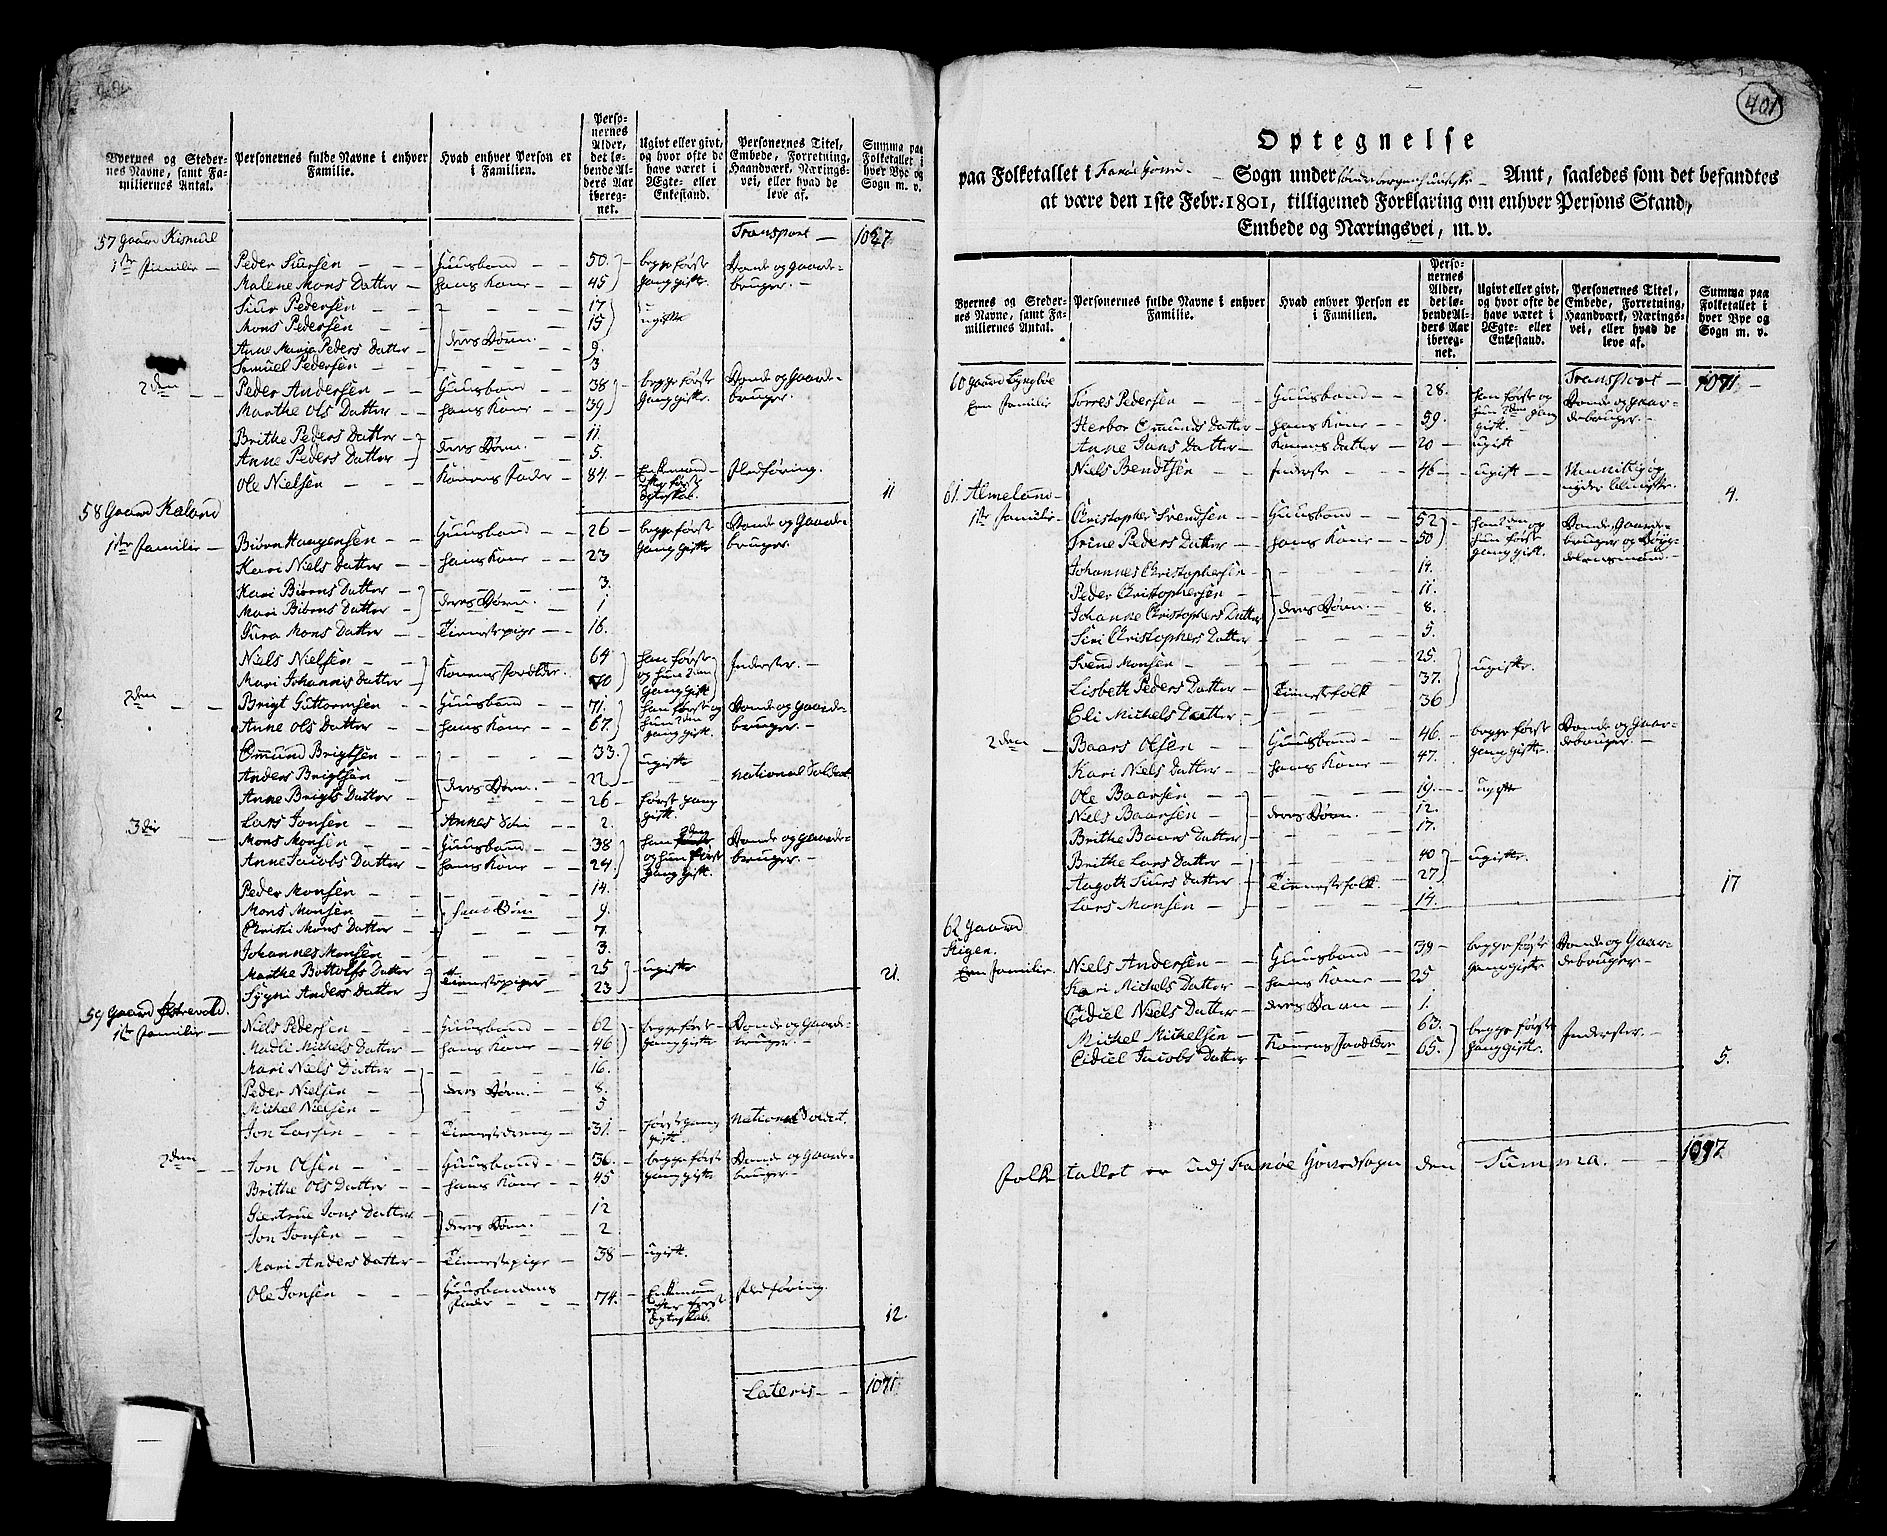 Byernes og Steder-
nes Navne, samt Fa-
miliernes Antal.
Personernes fulde Navne i enhver
Familie.
Hvad enhver Person er
i Familien.
Perso-
nernes
Alder,
det lø-
bende Al-
ders Aar
iberegnet.
Ugivt eller givt,
og hvor ofte de
have været i
Ægte- eller
Enkestand.
Personernes Titel,
Embede, Forretning,
Haandværk, Nærings-
vei, eller hvad de
leve af.
Summa paa
Folketallet i
hver Bye og
Sogn m. v.
Transport — 1027
57 Gaard Kismul
1ste Familie — Peder Siursen — Huusbond — 50. begge første Bonde og Gaarde-
Malene Mons Datter — hans Kone — 45 gang gifte. bruger.
Siur Pedersen — 17
Mons Pedersen — 15 ugifte
Anne Marja Peders Datter — deres Børn. — 9.
Samuel Pedersen — 3
2den Peder Andersen — Huusbond — 38 begge første Bonde og Gaarde-
Marthe Ols Datter — hans Kone — 39 Gang gifte. bruger.
Brithe Peders Datter — 11.
Anne Peders Datter — deres Børn. — 5.
Ole Nielsen — Konens Fader — 84. Enkemand Fledføring.
efter første
Egteskab. 11
58 Gaard Kaland
1ste Familie — Biørn Haagensen — Huusbond — 26 — begge først Bonde og Gaarde-
Kari Niels Datter — hans Kone — 23 gang gifte bruger.
Kari Biørns Datter — 3.
Mari Biørns Datter — deres Børn. — 1
Gura Mons Datter — Tienestepige — 16.
Niels Nielsen — 64 han første
Mari Johannis Datter — Konens Forældre — 70 og hun 2den Inderster. —
Gang gift
2den Brigt Guttormsen — Huusbond — 71. han første og Bonde og Gaarde-
Anne Ols Datter — hans Kone — 67. hun 2den bruger —
gang gift.
Ommund Brigtsen — 33.
Anders Brigtsen — 22 ugifte National Soldat
Anne Brigts Datter — deres Børn. — 26 — først gang
gift.
Lars Jonsen — Annes — 2.
3die Mons Monsen — Huusbond — 38 han 2den Bonde og Gaarde-
Anne Jacobs Datter — hans Kone — 24. og hun først bruger. —
gang gift.
Peder Monsen — 14.
Mons Monsen — hans Børn — 9.
Christi Mons Datter — 7.
Johannes Monsen — 3.
Marthe Bottolfs Datter — 25 ugifte
Sygni Anders Datter — Tienestepiger — 23 21.
59 Gaard Østrevold.
1ste Familie — Niels Pedersen — Huusbond — 62 begge første — Bonde og Gaarde-
Madli Michels Datter — hans Kone — 46 gang gifte bruger.
Mari Niels Datter — 16.
Peder Nielsen — deres Børn. — 8.
Michel Nielsen — 5
Jon Larsen — Tienestedreng — 31. først gang National Soldat.
gift.
2den Jon Olsen — Huusbond — 36. begge første Bonde og Gaarde-
Brithe Ols Datter — hans Kone — 45 gang gifte bruger —
Giertrue Jons Datter — 12
Jon Jonsen — deres Børn. — 2
Mari Anders Datter — Tienestepige — 38 — ugift.
Ole Jonsen — Huusbondens Fader — 74. Enkemand Fledføring.
efter først
Egteskab. 12.
Lateris — 1071
401
Optegnelse
paa Folketallet i Fanøe Hoved- Sogn under Søndrebergenhuusiske Amt, saaledes som det befandtes
at være den 1ste Febr: 1801, tilligemed Forklaring om enhver Persons Stand,
Embede og Næringsvei, m. v.
Byernes og Steder-
nes Navne, samt Fa-
miliernes Antal.
Personernes fulde Navne i enhver
Familie.
Hvad enhver Person er
i Familien.
Perso-
nernes
Alder,
det lø-
bende Al-
ders Aar
iberegnet.
Ugivt eller givt,
og hvor ofte de
have været i
Ægte- eller
Enkestand.
Personernes Titel,
Embede, Forretning,
Haandværk, Nærings-
vei, eller hvad de
leve af.
Summa paa
Folketallet i
hver Bye og
Sogn m. v.
Transport — 1071 —
60 Gaard Lyngbøe
Een Familie Torres Pedersen — Huusbond — 28. han første og Bonde og Gaar-
Herbor Omunds Datter — hans Kone — 59. hun 2den gang debruger —
gift.
Anne Jans Datter — Konens Datter — 20 — ugift
Niels Bendtsen — Inderste — 46 — ugift — Vanvittig og
nyder Almisse. 4.
61. Almeland —
1ste Familie — Christopher Svendsen — Huusbond — 52 han 2den og Bonde Gaarde-
Trine Peders Datter — hans Kone — 50 hun første bruger og Bøyg-
gang gift. delensmand —
Johannes Christophersen — 14.
Peder Christophersen — 11.
Johanne Christophers Datter — deres Børn. — 8.
Siri Christophers Datter — 5.
Svend Monsen — 25.
Lisbeth Peders Datter — Tienestefolk — 37. ugifte.
Eli Michels Datter — 36
2den — Baars Olsen — Huusbond — 46. begge første Bonde og Gaar-
Kari Niels Datter — hans Kone — 47. gang gifte. debruger —
Ole Baarsen — 19. — ugifte
Niels Baarsen — deres Børn. — 12.
Brithe Baars Datter — 17.
Brithe Lars Datter — 40 ugifte.
Aagoth Siurs Datter — Tienestefolk. — 27
Lars Monsen — 14. 17
62 Gaard
Stigen.
Een Familie. Niels Andersen — Huusbond — 39 — begge første Bonde og Gaar-
Kari Michels Datter — hans Kone — 25 gang gifte debruger —
Eidiel Niels Datter — deres Barn — 1.
Michel Michelsen — 63. begge første Inderster —
Eidiel Jacobs Datter — Konens Forældre — 65. gang gifte. 5.
Folketallet er udj Fanøe Hovedsogn den Summa. — 1097